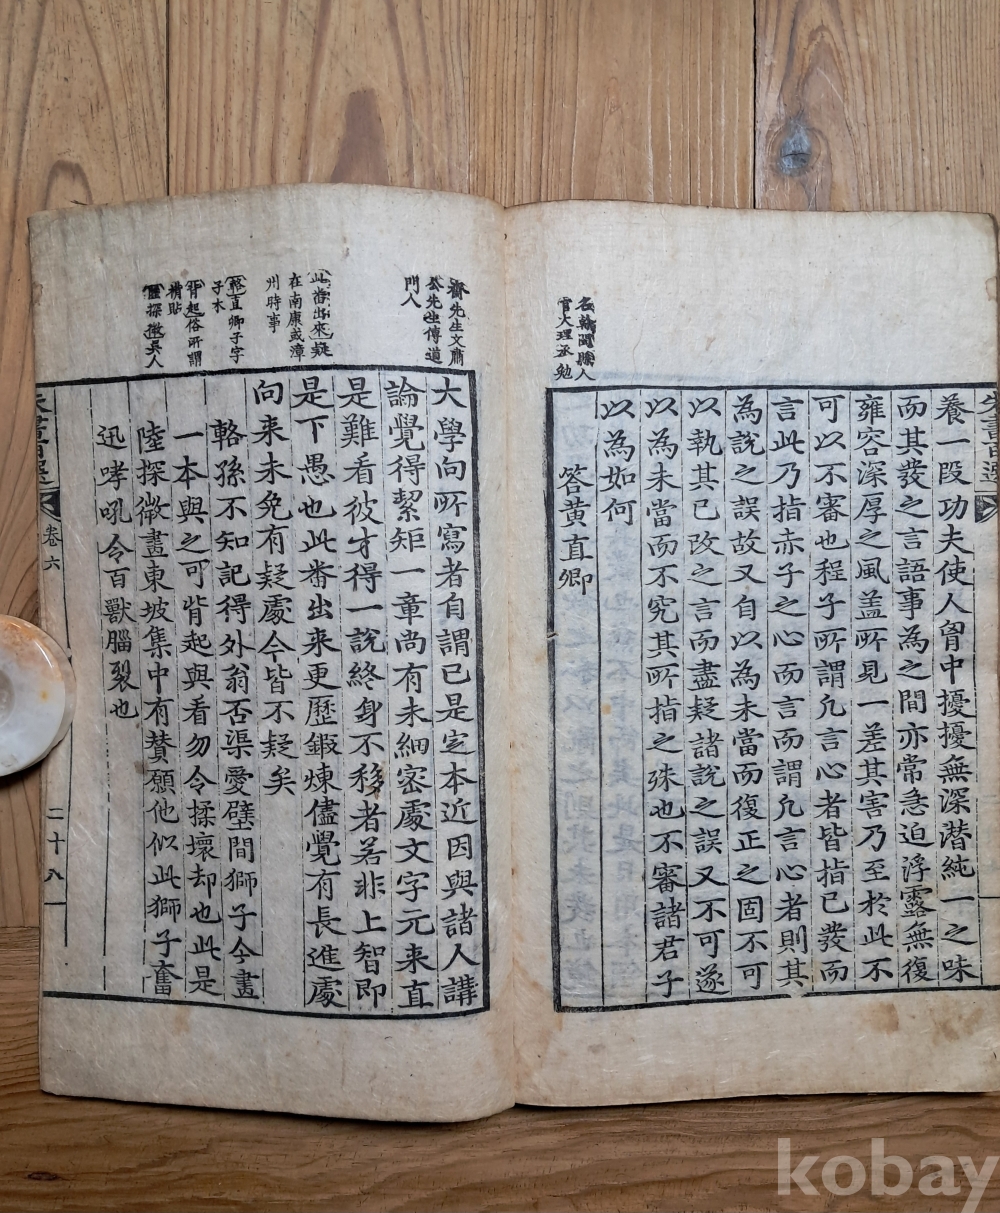 養一段功夫使人胷中擾擾無深潜純一之味
而其發之言語事為之間亦常急迫浮露無復
雍容深厚之風盖所見一差其害乃至於此不
可以不審也程子所謂凡言心者皆指已發而
言此乃指赤子之心而言而謂凡言心者則其
為說之誤故又自以為未當而復正之固不可
以執其已改之言而盡疑諸說之誤又不可遂
以為未當而不究其所指之殊也不審諸君子
以為如何
答黃直卿
名榦閩縣人
官大理丞勉
齋先生文肅
公先生傳道
門人
大學向所寫者自謂已是定本近因與諸人講
論覺得絜矩一章尚有未細密處文字元来直
是難看彼才得一說終身不移者若非上智即
是下愚也此番出来更歷鍛煉儘覺有長進處
向来未免有疑處今皆不疑矣
此番出來疑
在南康或漳
州時事
輅孫不知記得外翁否渠愛壁間獅子今畫
一本與之可背起與看勿令揉壞却也此是
陸探微畫東坡集中有賛願他似此獅子奮
迅哮吼令百獸腦裂也
輅直卿子字
子木
背起俗所謂
褙貼
陸探微吳人
朱書百選
卷六
二十八
朱書百選
kobay